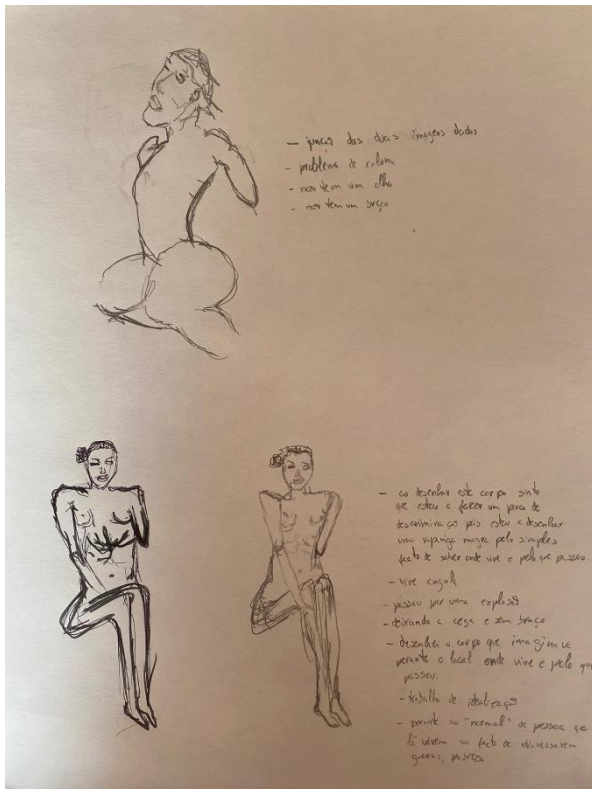 — junção das duas imagens dadas
- problema de coluna
- nao tem um olho
- nao tem um braço
- ao desenhar este corpo sinto
que estou a fazer um pouco de
descriminação pois estou a desenhar
uma rapariga magra pelo simples
facto de saber onde vive e pelo que passou
- vive
- passou por uma explosão
- deixando a cega e sem braço
- desenhei o corpo que imaginava
perante o local onde vive e pelo que
passou.
- trabalho de idealização
- perante ao "normal" de pessoas que
lá vivem ao facto de atravessarem
guerras, pobreza